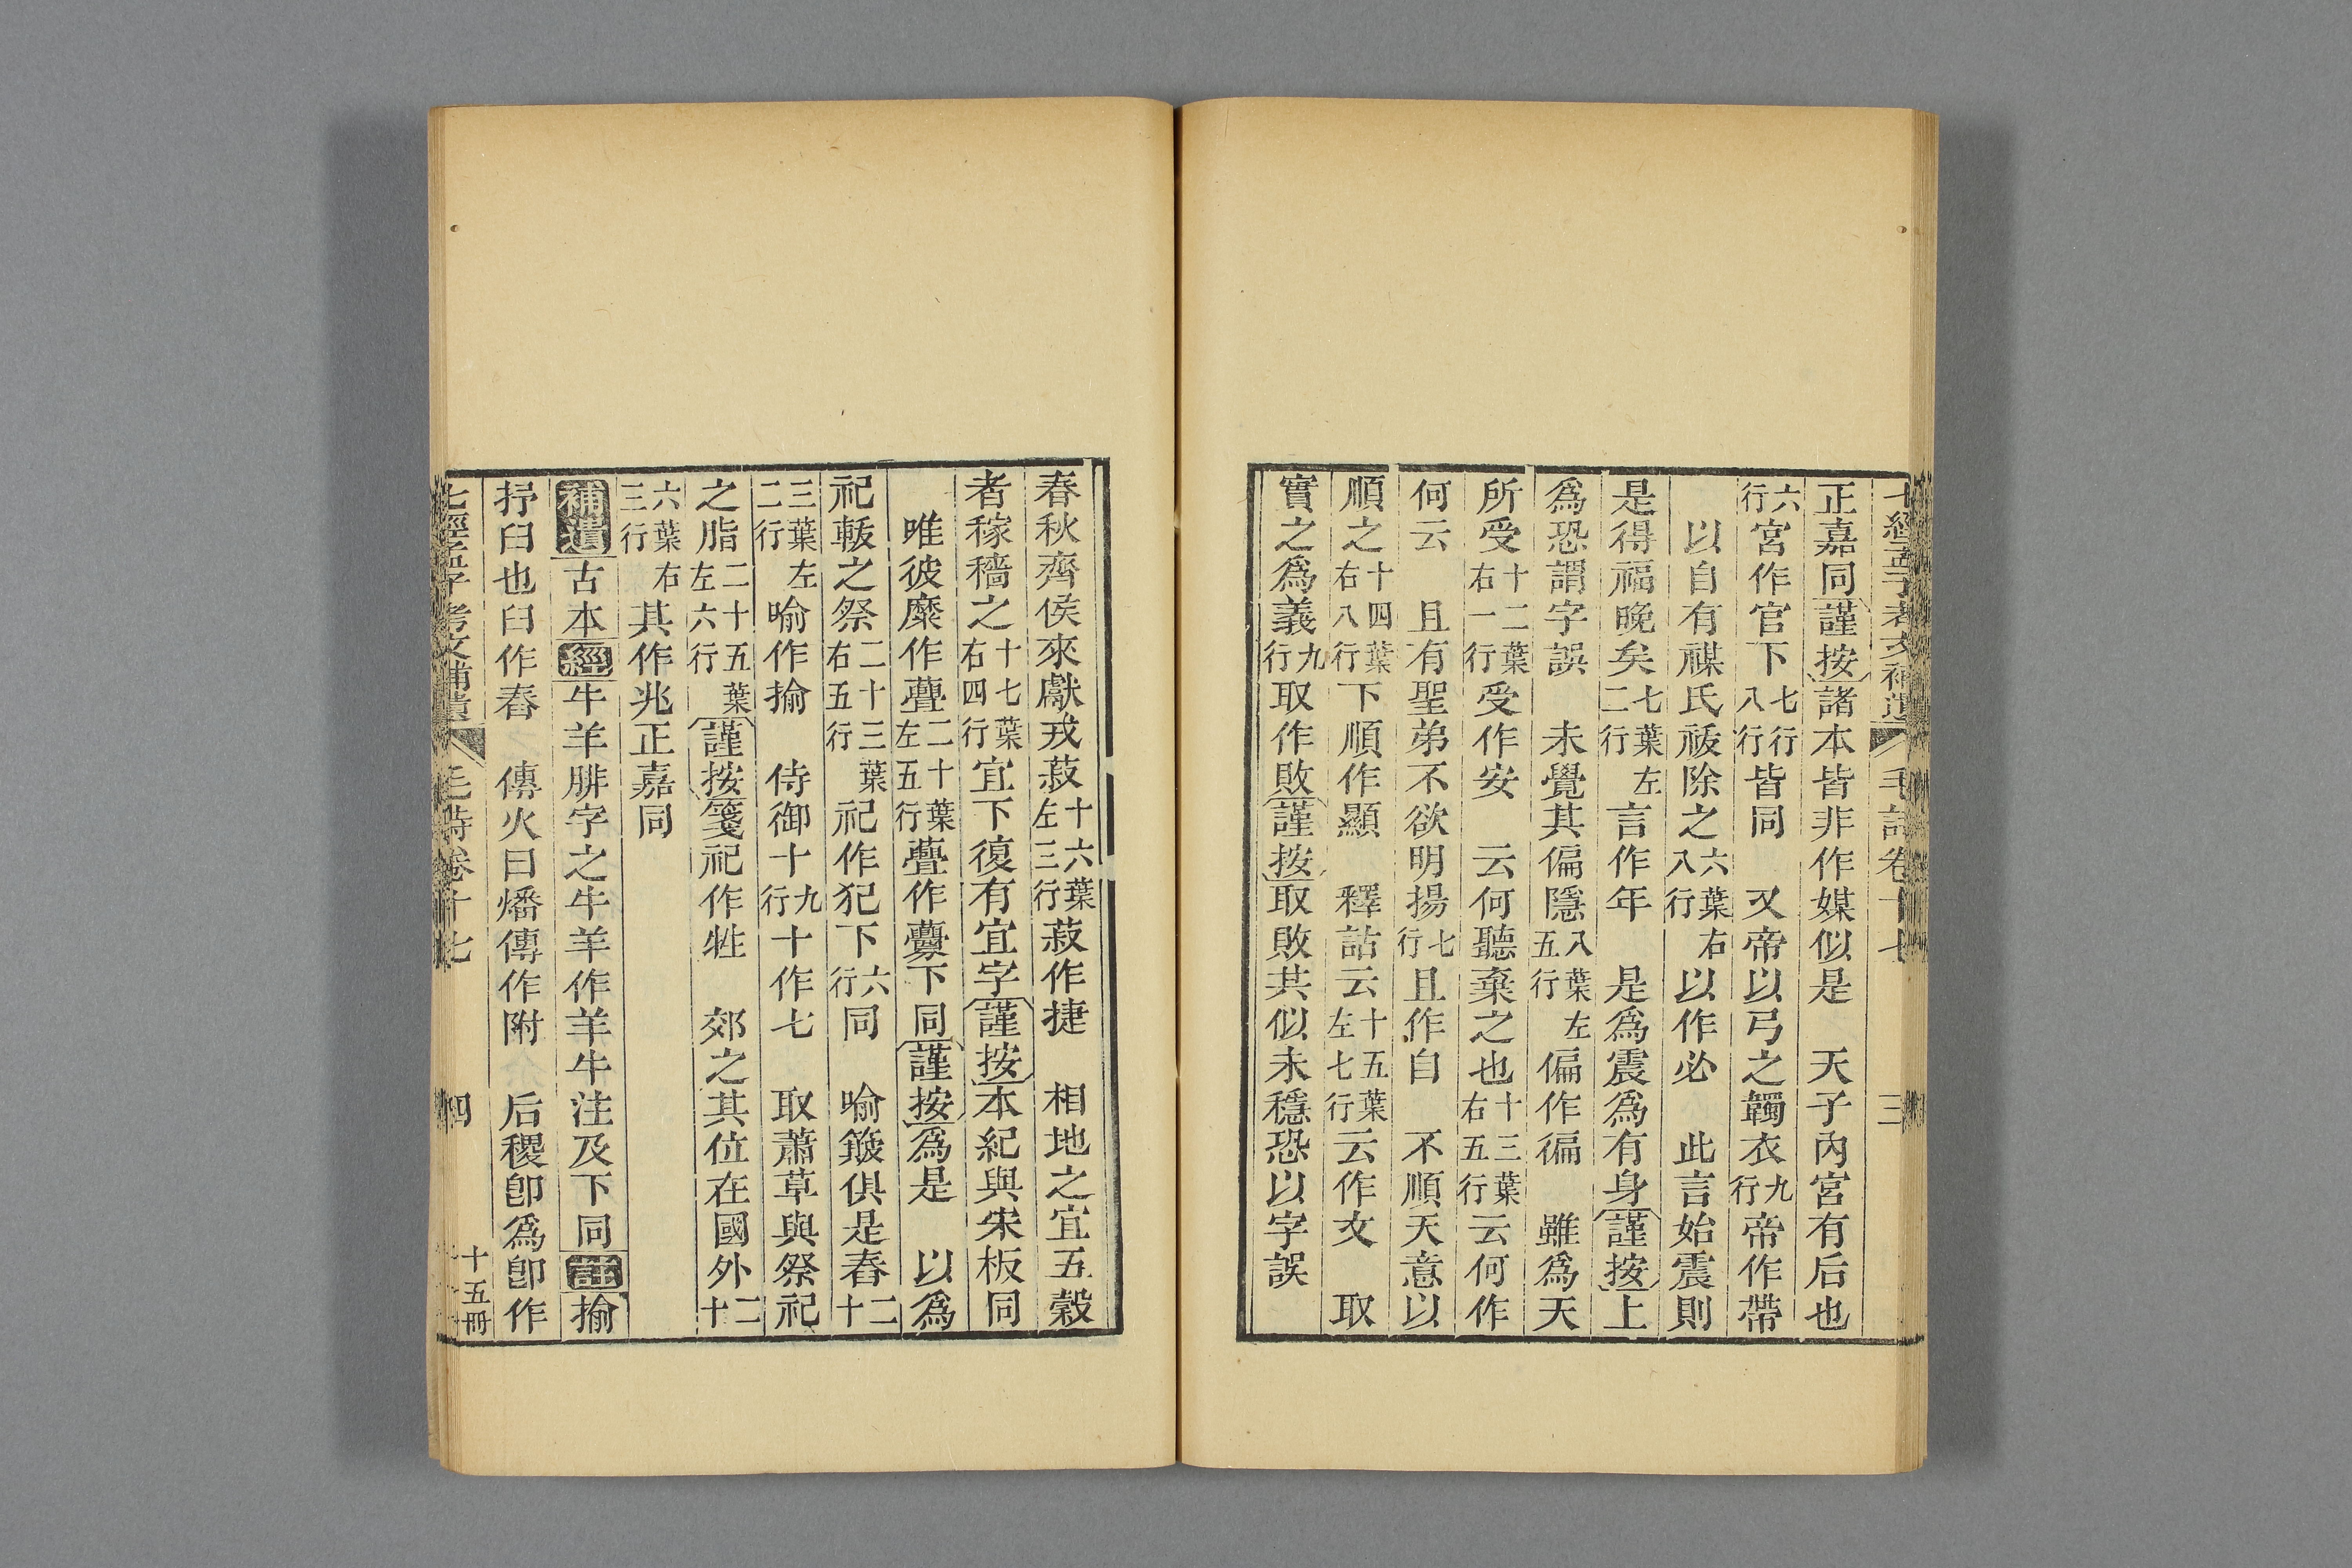 七經孟子考文補遺 毛詩卷十七 三
正嘉同謹按諸本皆非作媒似是 天子內宮有后也
六行宮作官下七行八行皆同 又帝以弓之韣衣九行帝作帶
以自有禖氏祓除之六葉右八行以作必 此言始震則
是得福晚矣七葉左二行言作年 是爲震爲有身謹按上
爲恐謂字誤 未覺其偏隱八葉左五行偏作徧 雖爲天
所受十二葉右一行受作安 云何聽棄之也十三葉右五行云何作
何云 且有聖弟不欲明揚七行且作自 不順天意以
順之十四葉右八行下順作顯 釋詁云十五葉左七行云作文 取
實之爲義九行取作敗謹按取敗其似未穩恐以字誤
春秋齊侯來獻戎菽十六葉左三行菽作捷 相地之宜五穀
者稼穡之十七葉右四行宜下復有宜字謹按本紀與宋板同
唯彼穈作虋二十葉左五行虋作虋下同謹按爲是 以爲
祀軷之祭二十三葉右五行祀作犯下六行同 喻簸俱是舂二十
三葉左二行喻作揄 侍御十九行十作七 取蕭草與祭祀
之脂二十五葉左六行謹按箋祀作牲 郊之其位在國外二十
六葉右三行其作兆正嘉同
補遺古本經牛羊腓字之牛羊作羊牛注及下同註揄
抒臼也臼作舂 傳火曰燔傳作附 后稷卽爲卽作
七經孟子考文補遺 毛詩卷十七 四 十五冊